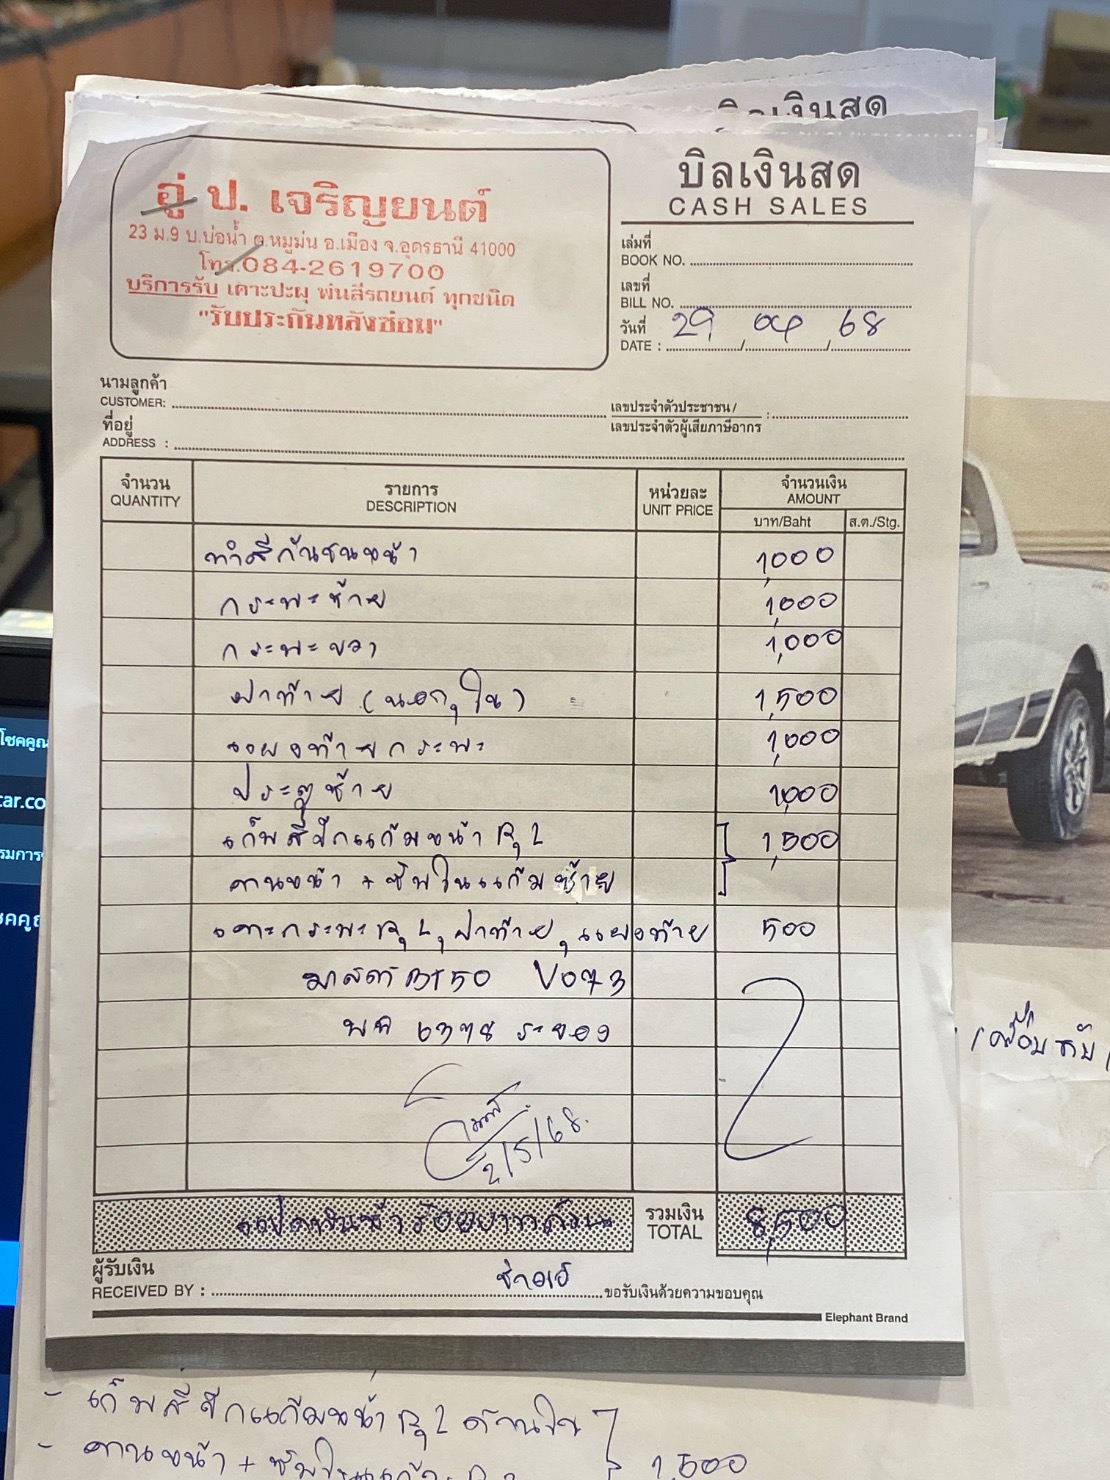 บิลเงินสด
อู่ ป. เจริญยนต์
23 ม.9 บ.บ่อน้ำ ต.หมูม่น อ.เมือง จ.อุดรธานี 41000
โทร.084-2619700
บริการรับ เคาะปะผุ พ่นสีรถยนต์ ทุกชนิด
"รับประกันหลังซ่อม"
บิลเงินสด
CASH SALES
เล่มที่
BOOK NO.
เลขที่
BILL NO.
วันที่ 29 / 04 / 68
DATE :
นามลูกค้า
CUSTOMER:
เลขประจำตัวประชาชน /
เลขประจำตัวผู้เสียภาษีอากร :
ที่อยู่
ADDRESS :
จำนวน รายการ หน่วยละ จำนวนเงิน
QUANTITY DESCRIPTION UNIT PRICE AMOUNT
บาท/Baht ส.ต./Stg.
ทำสีกันชนหน้า 1,000
กระพะซ้าย 1,000
กระพะขวา 1,000
ฝาท้าย (นอก, ใน) 1,500
แผงท้ายกระพะ 1,000
ประตูซ้าย 1,000
เก็บสีปีกแก้มหน้า R, L 1,500
คานหน้า + ซับในแก้มซ้าย
เคาะกระพะ R, L, ฝาท้าย, แผงท้าย 500
มาสด้า BT50 V073
ระยอง
2/5/68
แปดพันห้าร้อยบาทถ้วน รวมเงิน 8,500
TOTAL
ผู้รับเงิน
RECEIVED BY : ขอรับเงินด้วยความขอบคุณ
Elephant Brand
- เก็บสีปีกแก้มหน้า R, L ด้านใน
- คานหน้า + ซับในแก้ม 1,500
โชคคูณ
car.co
รมการ